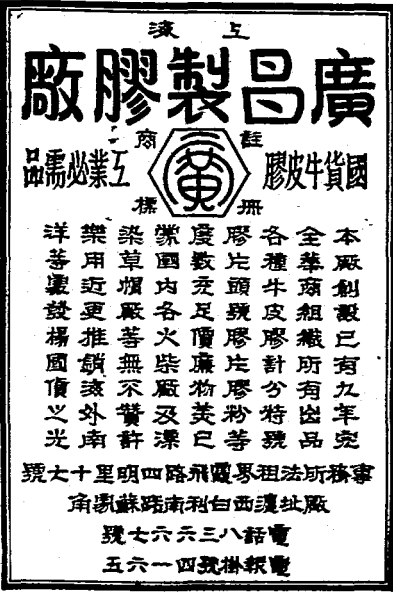 上海
廣昌製膠廠
註冊商標
廣
國貨牛皮膠
工業必需品
本廠創設已有九年完
全華商組織所有出品
各種牛皮膠計分特號
膠片頭號膠片膠粉等
度數充足價廉物美已
蒙國內各火柴廠及漂
染草帽廠等無不贊許
樂用近更推銷海外南
洋等處發揚國貨之光
事務所法租界霞飛路四明里十七號
廠址滬西白利南路蘇家角
電話八三六六七號
電報掛號四一六五